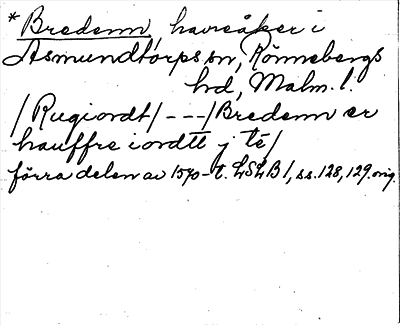 *Bredenn, havreåker i
Asmundtorps sn, Rönnebergs
hd, Malm. l.
/Rugiordt/ - - - /Bredenn er
hauffre iordtt j té/
förra delen av 1570-t. LSLB 1, ss. 128, 129. orig.